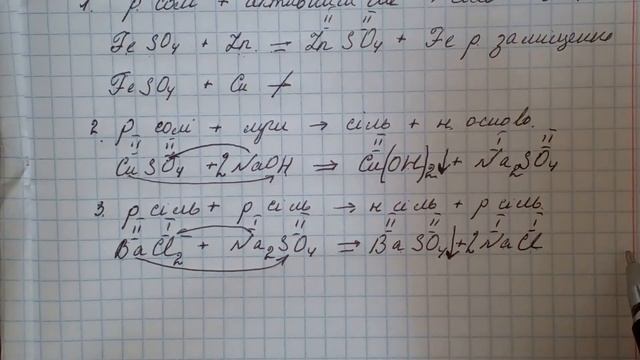 1. р. солі + активніший Ме
FeSO₄ + Zn = ZnSO₄ + Fe р. заміщення
FeSO₄ + Cu ≠
2. р. солі + луги → сіль + н. основа.
CuSO₄ + 2NaOH ⇒ Cu(OH)₂↓ + Na₂SO₄
3. р сіль + р сіль → н сіль + р сіль.
BaCl₂ + Na₂SO₄ ⇒ BaSO₄↓ + 2NaCl